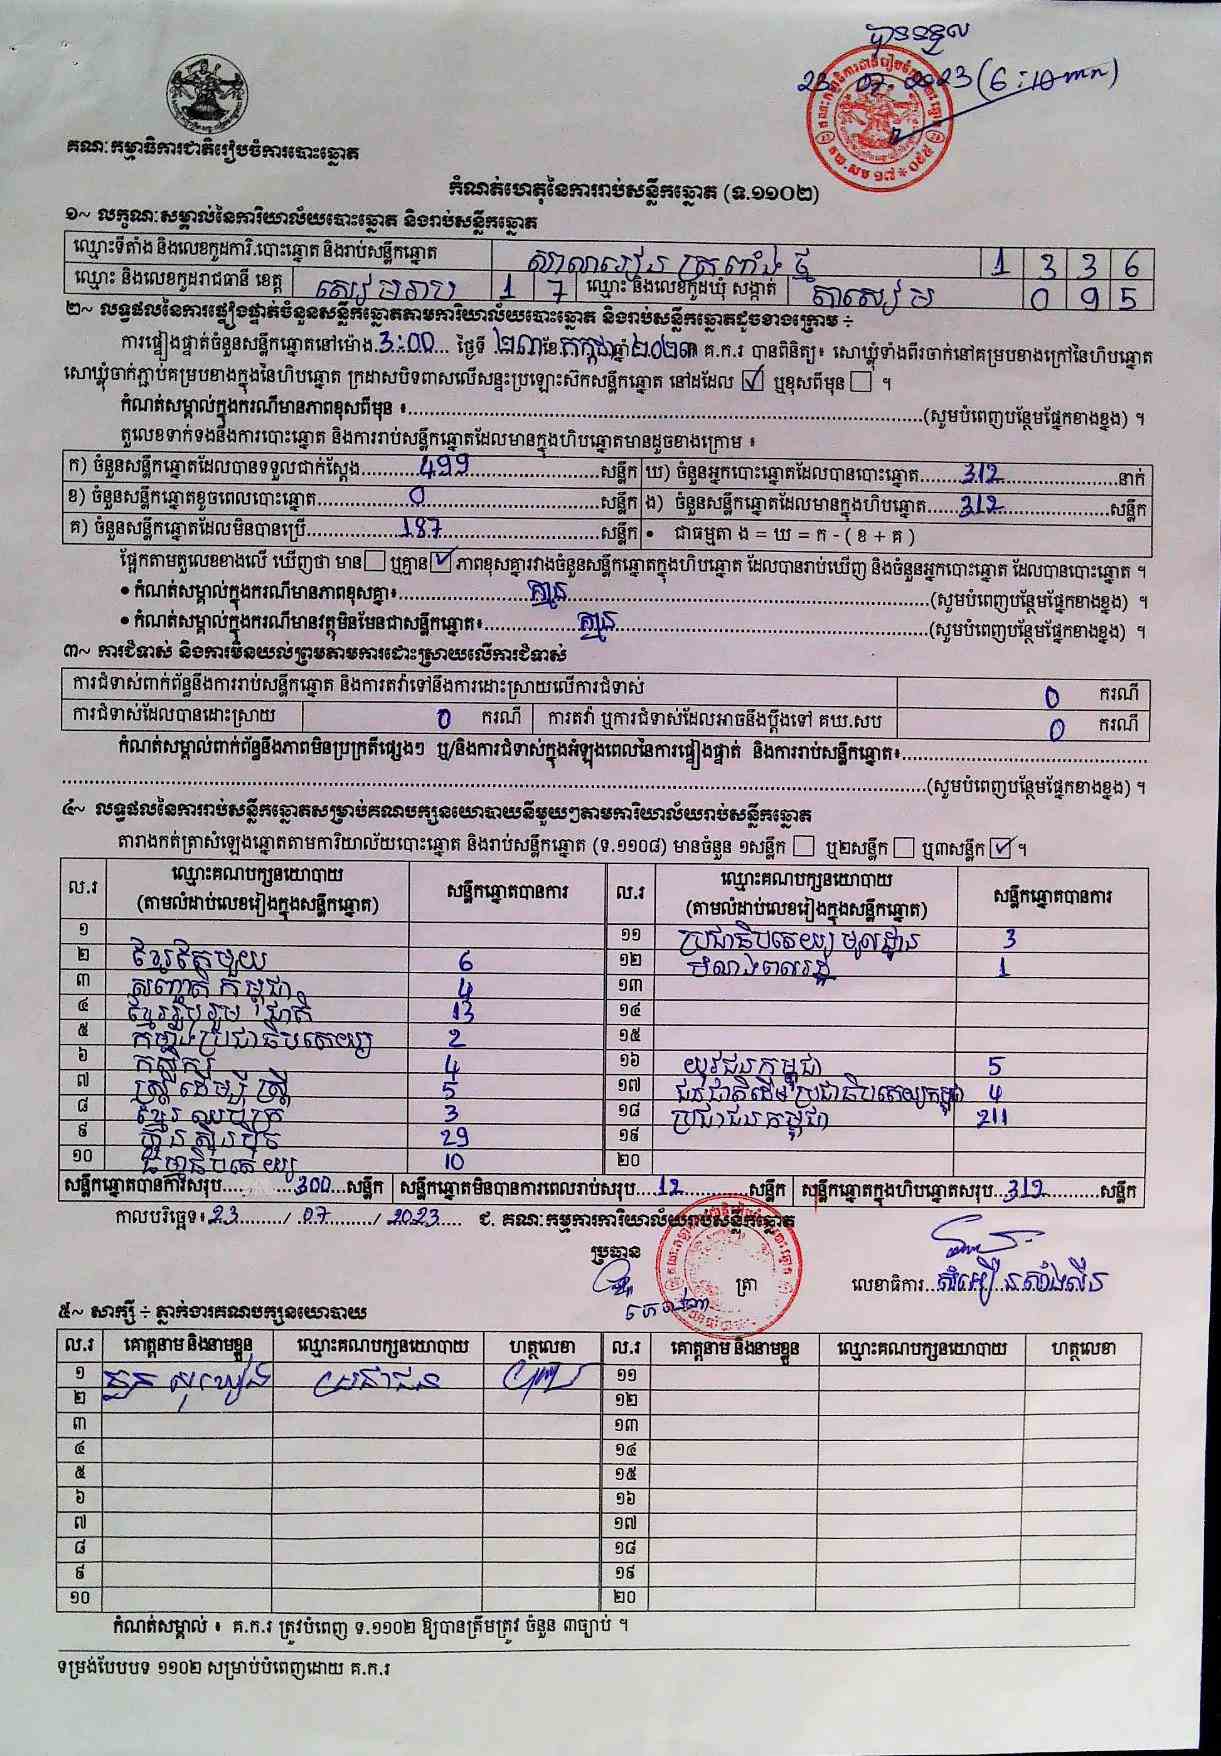 បានទទួល
23 07. 2023 (6:10
គណៈកម្មាធិការជាតិរៀបចំការបោះឆ្នោត
កំណត់ហេតុនៃការរាប់សន្លឹកឆ្នោត (ទ.១១០២)
១~ លក្ខណៈសម្គាល់នៃការិយាល័យបោះឆ្នោត និងរាប់សន្លឹកឆ្នោត
ឈ្មោះទីតាំង និងលេខកូដការិ.បោះឆ្នោត និងរាប់សន្លឹកឆ្នោត សាលារៀន ត្រពាំង 1 3 3 6
ឈ្មោះ និងលេខកូដរាជធានី ខេត្ត សៀមរាប 1 7 ឈ្មោះ និងលេខកូដឃុំ សង្កាត់ តាសៀម 0 9 5
២~ លទ្ធផលនៃការផ្ទៀងផ្ទាត់ចំនួនសន្លឹកឆ្នោតតាមការិយាល័យបោះឆ្នោត និងរាប់សន្លឹកឆ្នោតដូចខាងក្រោម ÷
ការផ្ទៀងផ្ទាត់ចំនួនសន្លឹកឆ្នោតនៅម៉ោង.3:00... ថ្ងៃទី ២៣ ខែ កក្កដា ឆ្នាំ ២០២៣ គ.ក.រ បានពិនិត្យ៖ សោឃ្លុំទាំងពីរចាក់នៅគម្របខាងក្រៅនៃហិបឆ្នោត
សោឃ្លុំចាក់ភ្ជាប់គម្របខាងក្នុងនៃហិបឆ្នោត ក្រដាសបិទពាសលើសន្ទះប្រឡោះស៊កសន្លឹកឆ្នោត នៅដដែល ☑ ឬខុសពីមុន ☐ ។
កំណត់សម្គាល់ក្នុងករណីមានភាពខុសពីមុន ៖..........(សូមបំពេញបន្ថែមផ្នែកខាងខ្នង) ។
តួលេខទាក់ទងនឹងការបោះឆ្នោត និងការរាប់សន្លឹកឆ្នោតដែលមានក្នុងហិបឆ្នោតមានដូចខាងក្រោម ៖
ក) ចំនួនសន្លឹកឆ្នោតដែលបានទទួលជាក់ស្តែង.....499.....សន្លឹក ឃ) ចំនួនអ្នកបោះឆ្នោតដែលបានបោះឆ្នោត.....312.....នាក់
ខ) ចំនួនសន្លឹកឆ្នោតខូចពេលបោះឆ្នោត.....0.....សន្លឹក ង) ចំនួនសន្លឹកឆ្នោតដែលមានក្នុងហិបឆ្នោត.....312.....សន្លឹក
គ) ចំនួនសន្លឹកឆ្នោតដែលមិនបានប្រើ.....187.....សន្លឹក • ជាធម្មតា ង = ឃ = ក - ( ខ + គ )
ផ្អែកតាមតួលេខខាងលើ ឃើញថា មាន ☐ ឬគ្មាន ☑ ភាពខុសគ្នារវាងចំនួនសន្លឹកឆ្នោតក្នុងហិបឆ្នោត ដែលបានរាប់ឃើញ និងចំនួនអ្នកបោះឆ្នោត ដែលបានបោះឆ្នោត ។
• កំណត់សម្គាល់ក្នុងករណីមានភាពខុសគ្នា៖.....គ្មាន.....(សូមបំពេញបន្ថែមផ្នែកខាងខ្នង) ។
• កំណត់សម្គាល់ក្នុងករណីមានវត្ថុមិនមែនជាសន្លឹកឆ្នោត៖.....គ្មាន.....(សូមបំពេញបន្ថែមផ្នែកខាងខ្នង) ។
៣~ ការជំទាស់ និងការមិនយល់ព្រមតាមការដោះស្រាយលើការជំទាស់
ការជំទាស់ពាក់ព័ន្ធនឹងការរាប់សន្លឹកឆ្នោត និងការតវ៉ាទៅនឹងការដោះស្រាយលើការជំទាស់ 0 ករណី
ការជំទាស់ដែលបានដោះស្រាយ 0 ករណី ការតវ៉ា ឬការជំទាស់ដែលអាចនឹងប្តឹងទៅ គឃ.សប 0 ករណី
កំណត់សម្គាល់ពាក់ព័ន្ធនឹងភាពមិនប្រក្រតីផ្សេងៗ ឬ/និងការជំទាស់ក្នុងអំឡុងពេលនៃការផ្ទៀងផ្ទាត់ និងការរាប់សន្លឹកឆ្នោត៖..........
..........(សូមបំពេញបន្ថែមផ្នែកខាងខ្នង) ។
៤~ លទ្ធផលនៃការរាប់សន្លឹកឆ្នោតសម្រាប់គណបក្សនយោបាយនីមួយៗតាមការិយាល័យរាប់សន្លឹកឆ្នោត
តារាងកត់ត្រាសំឡេងឆ្នោតតាមការិយាល័យបោះឆ្នោត និងរាប់សន្លឹកឆ្នោត (ទ.១១០៨) មានចំនួន ១សន្លឹក ☐ ឬ២សន្លឹក ☐ ឬ៣សន្លឹក ☑ ។
ល.រ ឈ្មោះគណបក្សនយោបាយ (តាមលំដាប់លេខរៀងក្នុងសន្លឹកឆ្នោត) សន្លឹកឆ្នោតបានការ ល.រ ឈ្មោះគណបក្សនយោបាយ (តាមលំដាប់លេខរៀងក្នុងសន្លឹកឆ្នោត) សន្លឹកឆ្នោតបានការ
១ ១១ ប្រជាធិបតេយ្យមូលដ្ឋាន 3
២ ខ្មែរតែមួយ 6 ១២ 1
៣ សញ្ជាតិកម្ពុជា 4 ១៣
៤ ខ្មែររួបរួមជាតិ 13 ១៤
៥ កម្លាំងប្រជាធិបតេយ្យ 2 ១៥
៦ កសិករ 4 ១៦ យុវជនកម្ពុជា 5
៧ ស្ត្រីដើម្បីស្ត្រី 5 ១៧ ជនជាតិដើមប្រជាធិបតេយ្យកម្ពុជា 4
៨ ខ្មែរ 3 ១៨ ប្រជាជនកម្ពុជា 211
៩ ហ៊្វុនស៊ិនប៉ិច 29 ១៩
១០ ធម្មាធិបតេយ្យ 10 ២០
សន្លឹកឆ្នោតបានការសរុប.....300...សន្លឹក សន្លឹកឆ្នោតមិនបានការពេលរាប់សរុប....12.....សន្លឹក សន្លឹកឆ្នោតក្នុងហិបឆ្នោតសរុប..312.....សន្លឹក
កាលបរិច្ឆេទ៖23....../ 07....../ 2023.... ជ. គណៈកម្មការការិយាល័យរាប់សន្លឹកឆ្នោត
ប្រធាន
ត្រា លេខាធិការ
៥~ សាក្សី ÷ ភ្នាក់ងារគណបក្សនយោបាយ
ល.រ គោត្តនាម និងនាមខ្លួន ឈ្មោះគណបក្សនយោបាយ ហត្ថលេខា ល.រ គោត្តនាម និងនាមខ្លួន ឈ្មោះគណបក្សនយោបាយ ហត្ថលេខា
១ ប្រជាជន ១១
២ ១២
៣ ១៣
៤ ១៤
៥ ១៥
៦ ១៦
៧ ១៧
៨ ១៨
៩ ១៩
១០ ២០
កំណត់សម្គាល់ ៖ គ.ក.រ ត្រូវបំពេញ ទ.១១០២ ឱ្យបានត្រឹមត្រូវ ចំនួន ៣ច្បាប់ ។
ទម្រង់បែបបទ ១១០២ សម្រាប់បំពេញដោយ គ.ក.រ